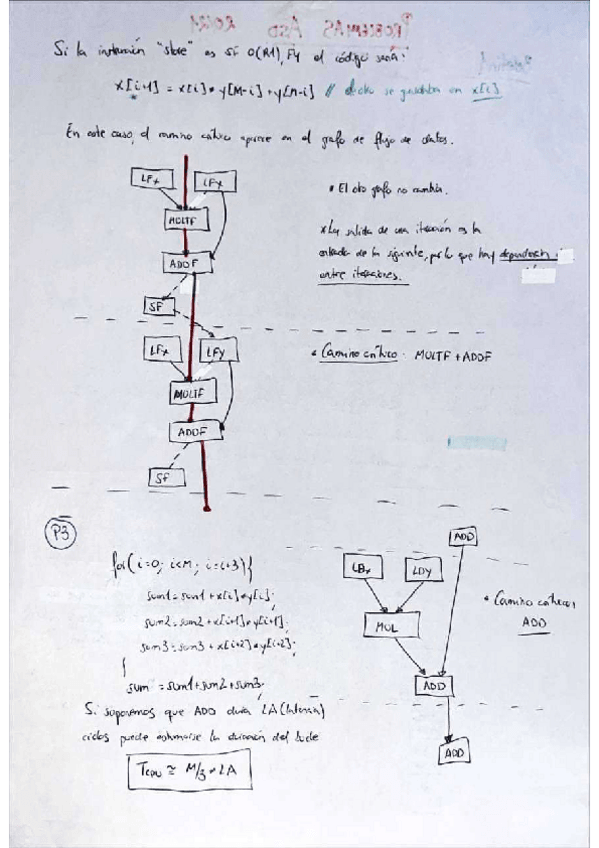 PROBLEMAS ASD
Si la instrucción "store" es SF 0(R1), Fy el código sería:
x[i+1] = x[i] * y[M-i] + y[M-i] // antes se guardaba en x[i]
En este caso, el camino crítico aparece en el grafo de flujo de datos.
LFx LFx
* El otro grafo no cambia.
MULTF
* La salida de una iteración es la
entrada de la siguiente, por lo que hay dependencia
entre iteraciones.
ADDF
SF
LFx LFY
* Camino crítico: MULTF + ADDF
MULTF
ADDF
SF
P3
for(i=0; i<M; i=i+3){
sum1=sum1+x[i]*y[i];
sum2=sum2+x[i+1]*y[i+1];
sum3=sum3+x[i+2]*y[i+2];
}
sum=sum1+sum2+sum3
Si suponemos que ADD dura LA(latencia)
ciclos puede estimarse la duración del bucle
TCPU ≅ M/3 * LA
ADD
LBx LDY
* Camino crítico:
ADD
MUL
ADD
ADD